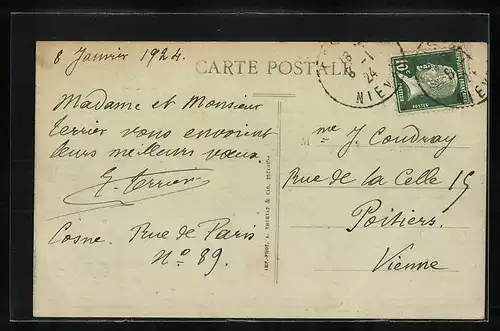 8 Janvier 1924.
CARTE POSTALE
18
8 -1
24
NIEV
10
POSTES
Madame et Monsieur
Terrier vous envoient
leurs meilleurs vœux.
G. Terrier
Cosne. Rue de Paris
No 89.
M
me J. Coudray
Rue de la Celle 15
Poitiers.
Vienne